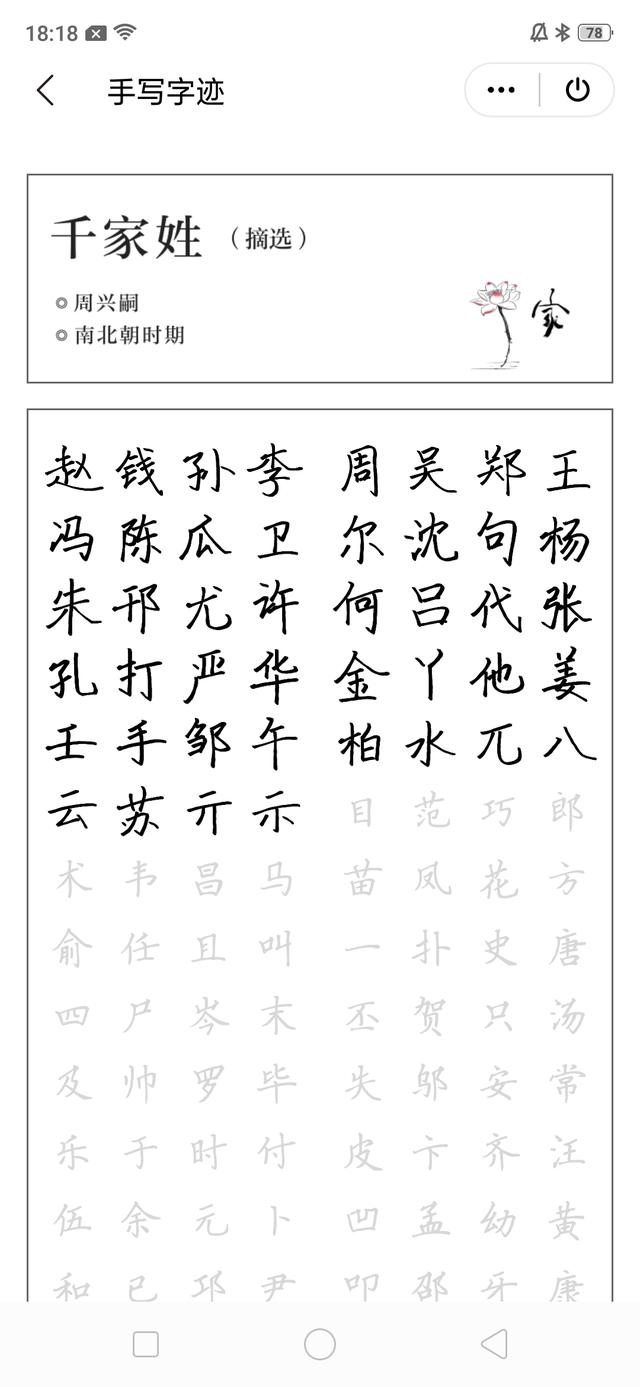 18:18
78
手写字迹
千家姓 （摘选）
周兴嗣
南北朝时期
家
赵钱孙李 周吴郑王
冯陈瓜卫 尔沈句杨
朱邗尤许 何吕代张
孔打严华 金丫他姜
壬手邹午 柏水兀八
云苏亓示 目范巧郎
术韦昌马 苗凤花方
俞任且叫 一扑史唐
四尸岑末 丕贺只汤
及帅罗毕 失邬安常
乐于时付 皮卞齐汪
伍余元卜 凹孟幼黄
和已邛尹 叩邵牙康